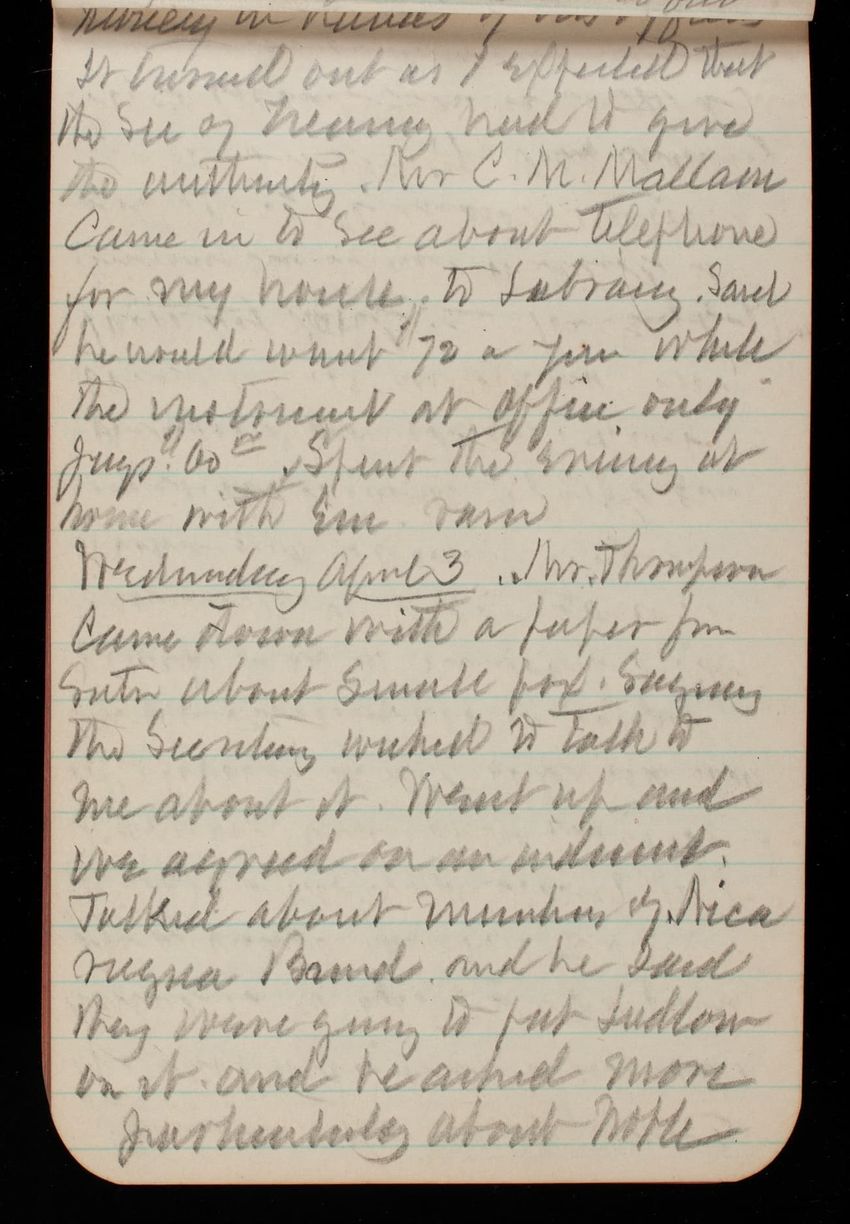 It turned out as I expected that
the Sec of Treasury had to give
the authority. Mr C. M. Mallam
Came in to see about telephone
for my house. to Library. Said
he would want $72 a year while
the instrument at office only
pays $60 00. Spent the evening at
home with Em rain
Wednesday April 3. Mr. Thompson
Came down with a paper from
about Senate Saying
the Secretary wished to talk to
me about it. Went up and
we agreed on an indsmt.
Talked about members of Nica
ragua Board and he said
they were going to put Ludlow
on it. and he asked more
particularly about Noble